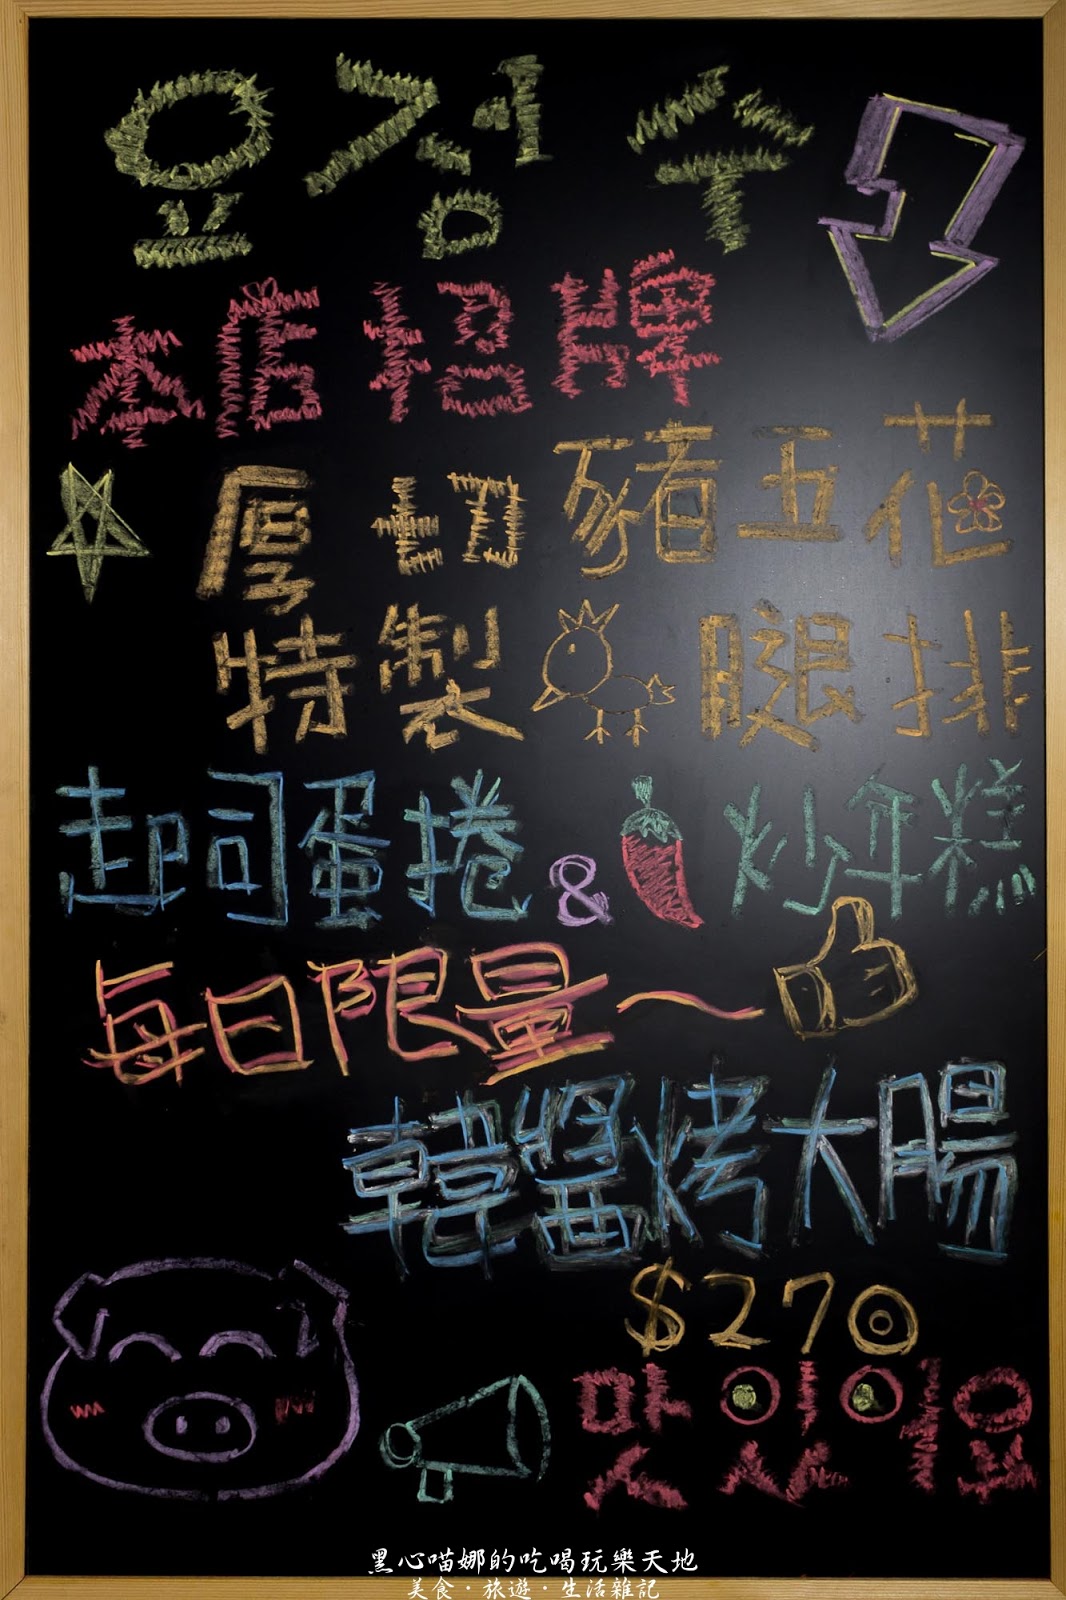 요정수
本店招牌
厚切豬五花
特製腿排
起司蛋捲&炒年糕
每日限量~
韓醬烤大腸
$270
맛있어요
黑心喵娜的吃喝玩樂天地
美食·旅遊·生活雜記